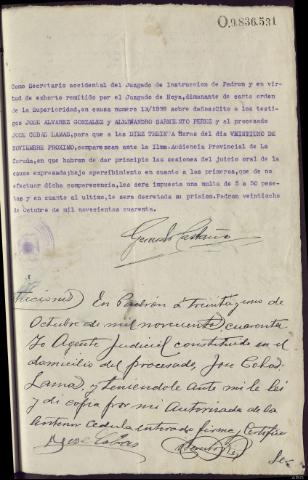 O.9.836.531
Como Secretario accidental del Juzgado de Instruccion de Padron y en vir-
tud de exhorto remitido por el Juzgado de Noya, dimanante de carta orden
de la Superioridad, en causa numero 13/1938 sobre daños; Cito a los testi-
gos JOSE ALVAREZ GONZALEZ y ALEJANDRO SARMIENTO PEREZ y al procesado
JOSE COBAL LAMAS, para que a las DIEZ TREINTA Horas del dia VEINTIUNO DE
NOVIEMBRE PROXIMO, comparezcan ante la Ilma. Audiencia Provincial de La
Coruña, en que habran de dar principio las sesiones del juicio oral de la
causa expresada; bajo apercibimiento en cuanto a los primeros, que de no
efectuar dicha comparecencia, les sera impuesta una multa de 5 a 50 pese-
tas y en cuanto al ultimo, le sera decretada su prision. Padron veintiocho
de Octubre de mil novecientos cuarenta.
En Padrón a treinta y uno de
Octubre de mil novecientos cuarenta
Yo Agente Judicial constituido en el
domicilio del procesado, Jose Cobal
Lamas, y teniendole ante mi le lei
y di copia por mi Autorizada de la
Anterior Cedula enterado firma, Certifico
Jose Cobas